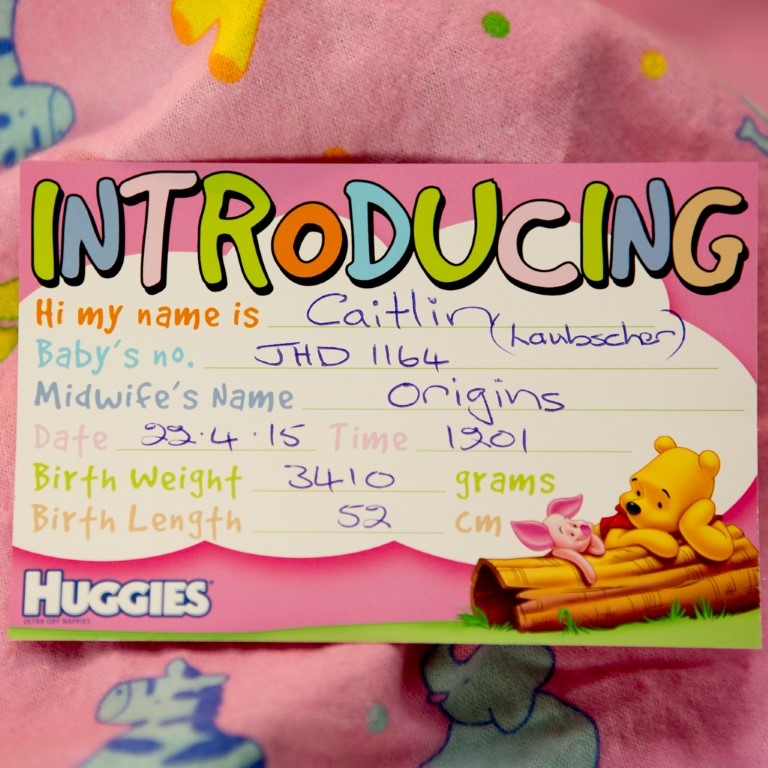 INTRODUCING
Hi my name is Caitlin (Laubscher)
Baby's no. JHD 1164
Midwife's Name Origins
Date 22.4.15 Time 1201
Birth Weight 3410 grams
Birth Length 52 cm
HUGGIES
ULTRA DRY NAPPIES